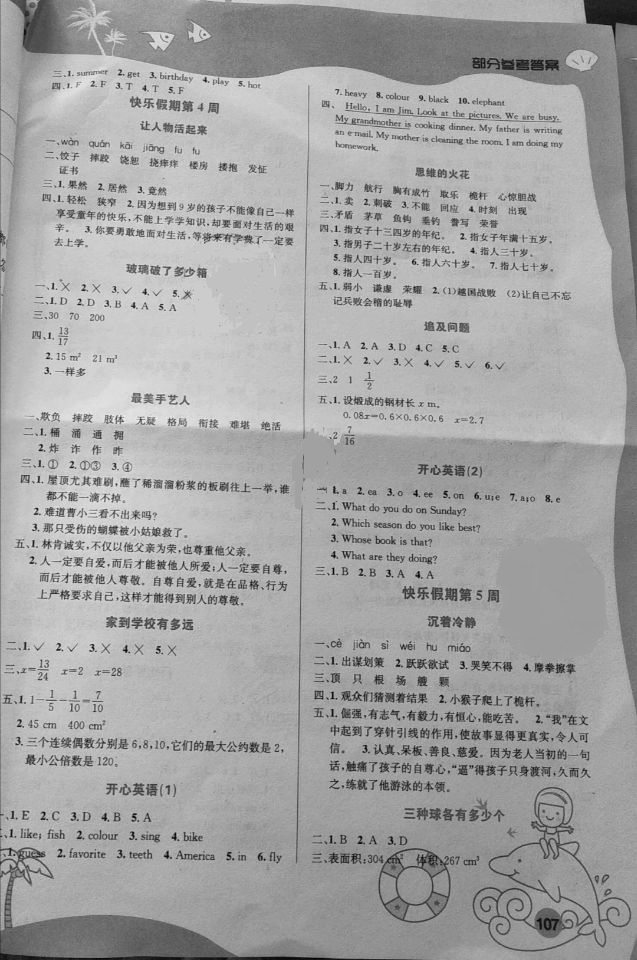 部分参考答案
三、1. summer 2. get 3. birthday 4. play 5. hot
四、1. F 2. F 3. T 4. T 5. F
快乐假期第4周
让人物活起来
一、wàn quán kāi jiāng fu fu
二、饺子 摔跤 饶恕 挠痒痒 楼房 搂抱 发怔
证书
三、1. 果然 2. 居然 3. 竟然
四、1. 轻松 狭窄 2. 因为想到9岁的孩子不能像自己一样
享受童年的快乐,不能上学学知识,却要面对生活的艰
辛。 3. 你要勇敢地面对生活,等将来有学费了一定要
去上学。
玻璃破了多少箱
一、1. ╳ 2. ╳ 3. ✓ 4. ✓ 5. ╳
二、1. D 2. D 3. B 4. A 5. A
三、30 70 200
四、1. 13/17
2. 15 m² 21 m³
3. 一样多
最美手艺人
一、欺负 摔跤 肢体 无疑 格局 衔接 难堪 绝活
二、1. 桶 涌 通 拥
2. 炸 诈 作 昨
三、1. ① 2. ①③ 3. ④
四、1. 屋顶尤其难刷,蘸了稀溜溜粉浆的板刷往上一举,谁
都不能一滴不掉。
2. 难道曹小三看不出来吗?
3. 那只受伤的蝴蝶被小姑娘救了。
五、1. 林肯诚实,不仅以他父亲为荣,也尊重他父亲。
2. 人一定要自爱,而后才能被他人所爱;人一定要自尊,
而后才能被他人尊敬。自尊自爱,就是在品格、行为
上严格要求自己,这样才能得到别人的尊敬。
家到学校有多远
二、1. ✓ 2. ✓ 3. ╳ 4. ╳ 5. ╳
三、x=13/24 x=2 x=28
五、1. 1-1/5-1/10=7/10
2. 45 cm 400 cm²
3. 三个连续偶数分别是6,8,10,它们的最大公约数是2,
最小公倍数是120。
开心英语(1)
一、1. E 2. C 3. D 4. B 5. A
二、1. like; fish 2. colour 3. sing 4. bike
三、1. guess 2. favorite 3. teeth 4. America 5. in 6. fly
7. heavy 8. colour 9. black 10. elephant
四、 Hello, I am Jim. Look at the pictures. We are busy.
My grandmother is cooking dinner. My father is writing
an e-mail. My mother is cleaning the room. I am doing my
homework.
思维的火花
一、脚力 航行 胸有成竹 取乐 桅杆 心惊胆战
二、1. 卖 2. 刺破 3. 不能 回应 4. 时刻 出现
三、矛盾 茅草 鱼钩 垂钓 誊写 荣誉
四、1. 指女子十三四岁的年纪。 2. 指女子年满十五岁。
3. 指男子二十岁左右的年纪。 4. 指人三十岁。
5. 指人四十岁。 6. 指人六十岁。 7. 指人七十岁。
8. 指人一百岁。
五、1. 弱小 谦虚 荣耀 2. (1)越国战败 (2)让自己不忘
记兵败会稽的耻辱
追及问题
一、1. A 2. A 3. D 4. C 5. C
二、1. ╳ 2. ✓ 3. ╳ 4. ✓ 5. ✓ 6. ✓
三、2 1 1/2
五、1. 设煅成的钢材长x m。
0.08x=0.6×0.6×0.6 x=2.7
2. 7/16
开心英语(2)
一、1. a 2. ea 3. o 4. ee 5. on 6. u;e 7. a;o 8. e
二、1. What do you do on Sunday?
2. Which season do you like best?
3. Whose book is that?
4. What are they doing?
三、1. B 2. B 3. A 4. A
快乐假期第5周
沉着冷静
一、cè jiàn sì wéi hu miáo
二、1. 出谋划策 2. 跃跃欲试 3. 哭笑不得 4. 摩拳擦掌
三、顶 只 根 场 艘 颗
四、1. 观众们猜测着结果 2. 小猴子爬上了桅杆。
五、1. 倔强,有志气,有毅力,有恒心,能吃苦。 2. “我”在文
中起到了穿针引线的作用,使故事显得更真实,令人可
信。 3. 认真、呆板、善良、慈爱。因为老人当初的一句
话,触痛了孩子的自尊心,“逼”得孩子只身渡河,久而久
之,练就了他游泳的本领。
三种球各有多少个
二、1. B 2. A 3. D
三、表面积:304 cm² 体积:267 cm³
107